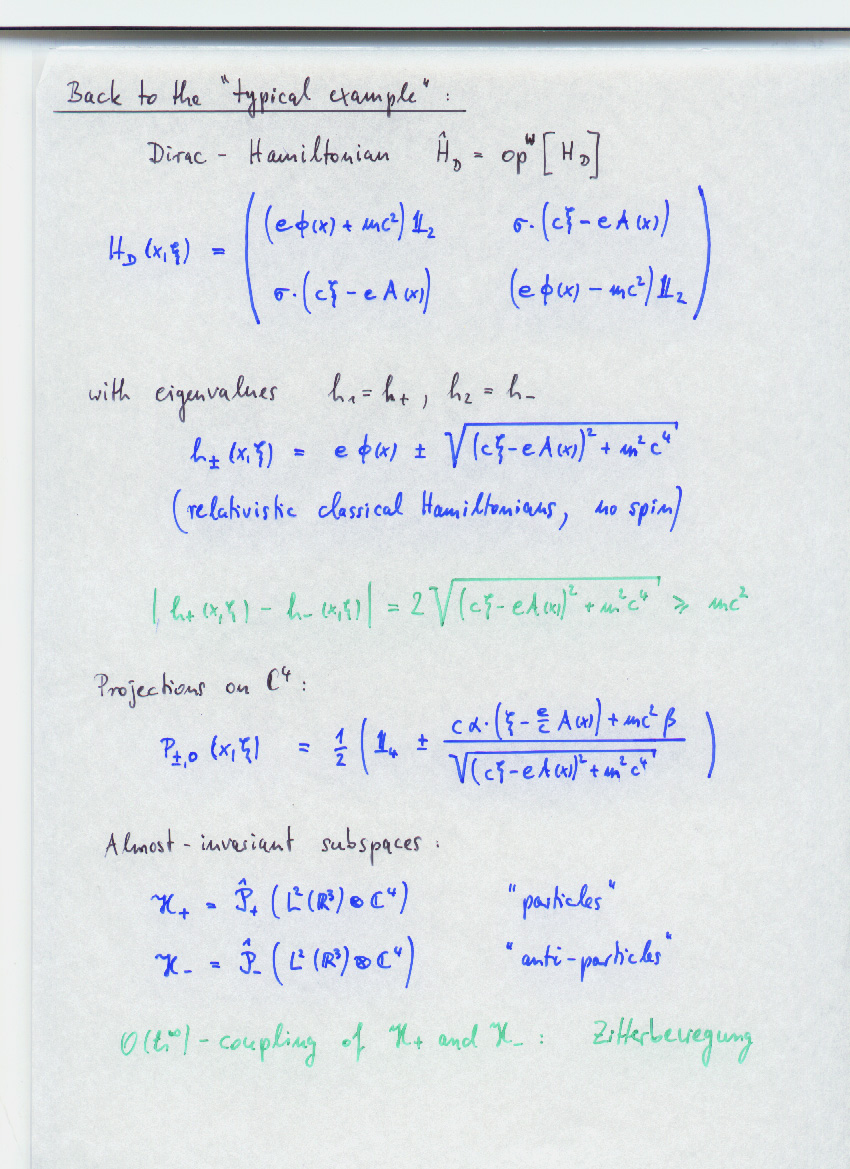 Back to the "typical example" :
Dirac - Hamiltonian Ĥ_D = op^W [H_D]
H_D (x,ξ) = ( (eϕ(x) + mc²) 𝟙₂ σ·(cξ - eA(x))
σ·(cξ - eA(x)) (eϕ(x) - mc²) 𝟙₂ )
with eigenvalues h₁ = h₊ , h₂ = h₋
h± (x,ξ) = eϕ(x) ± √((cξ - eA(x))² + m²c⁴)
(relativistic classical Hamiltonians, no spin)
|h₊(x,ξ) - h₋(x,ξ)| = 2√((cξ - eA(x))² + m²c⁴) ≥ mc²
Projections on ℂ⁴ :
P±,0 (x,ξ) = 1/2 ( 𝟙₄ ± (cα·(ξ - e/c A(x)) + mc²β) / √((cξ - eA(x))² + m²c⁴) )
Almost-invariant subspaces :
ℋ₊ = 𝒫̂₊ (L²(ℝ³) ⊗ ℂ⁴) "particles"
ℋ₋ = 𝒫̂₋ (L²(ℝ³) ⊗ ℂ⁴) "anti-particles"
O(ħ^∞) - coupling of ℋ₊ and ℋ₋ : Zitterbewegung